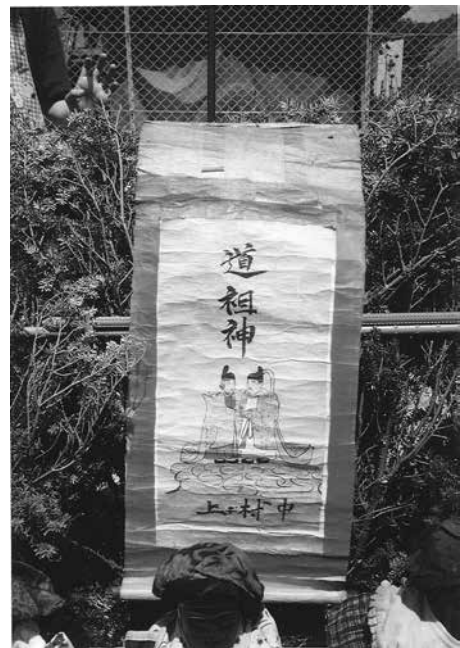 道祖神
上村中